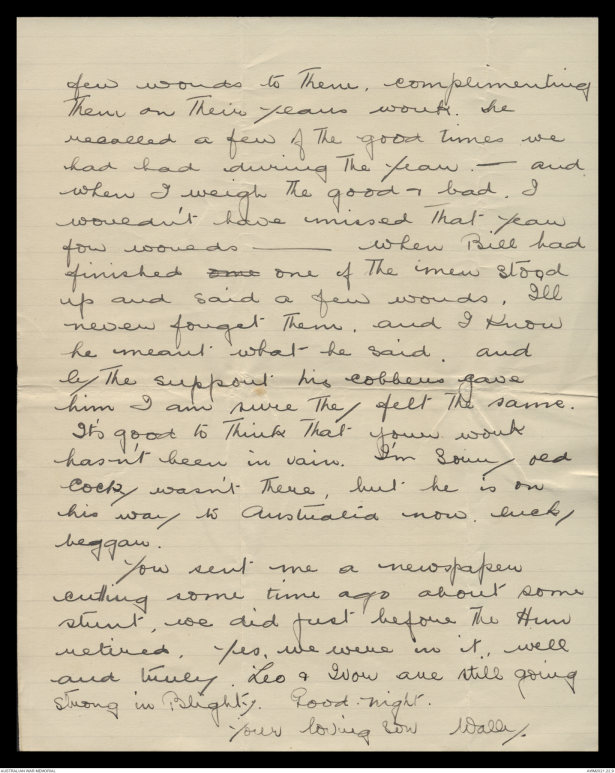 few words to them, complimenting
them on their years work. he
recalled a few of the good times we
had had during the year. — and
when I weigh the good & bad. I
wouldn't have missed that year
for wourlds —— when Bill had
finished one one of the men stood
up and said a few words, Ill
never forget them, and I know
he meant what he said. and
by the support his cobbers gave
him I am sure they felt the same.
It's good to think that your work
hasn't been in vain. I'm sorry old
Cocky wasn't there, but he is on
his way to Australia now. lucky
beggar.
You sent me a newspaper
cutting some time ago about some
stunt, we did just before the Hun
retired. Yes, we were in it, well
and truly. Leo & Ivor are still going
strong in Blighty. Good-night.
Your loving son Wally.
AUSTRALIAN WAR MEMORIAL